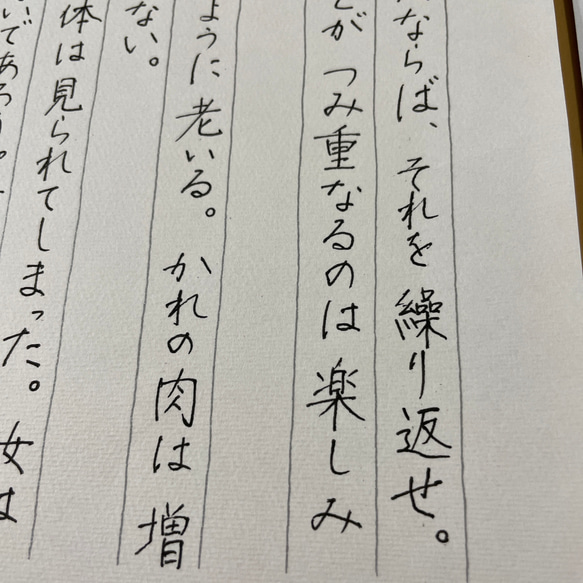 ならば、それを繰り返せ。
とが つみ重なるのは 楽しみ
ように 老いる。 かれの 肉は 増
ない。
体は 見られてしまった。 女は
いであろう。